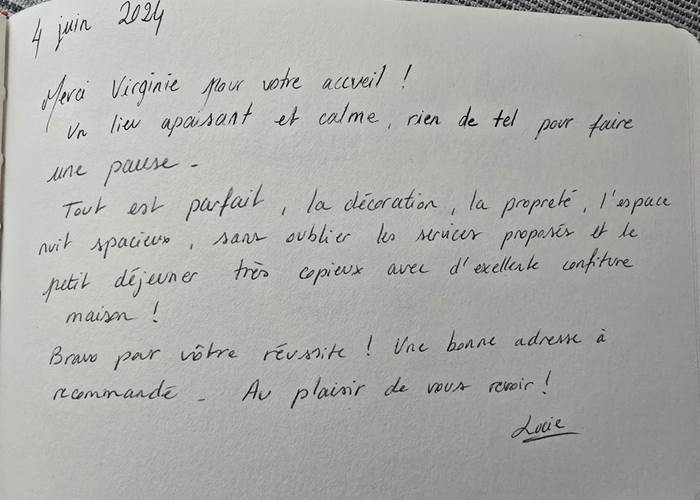 4 juin 2024
Merci Virginie pour votre accueil !
Un lieu apaisant et calme, rien de tel pour faire
une pause -
Tout est parfait, la décoration, la propreté, l'espace
nuit spacieux, sans oublier les services proposés et le
petit déjeuner très copieux avec d'exellente confiture
maison !
Bravo pour vôtre réussite ! Une bonne adresse à
recommandé - Au plaisir de vous revoir !
Lucie